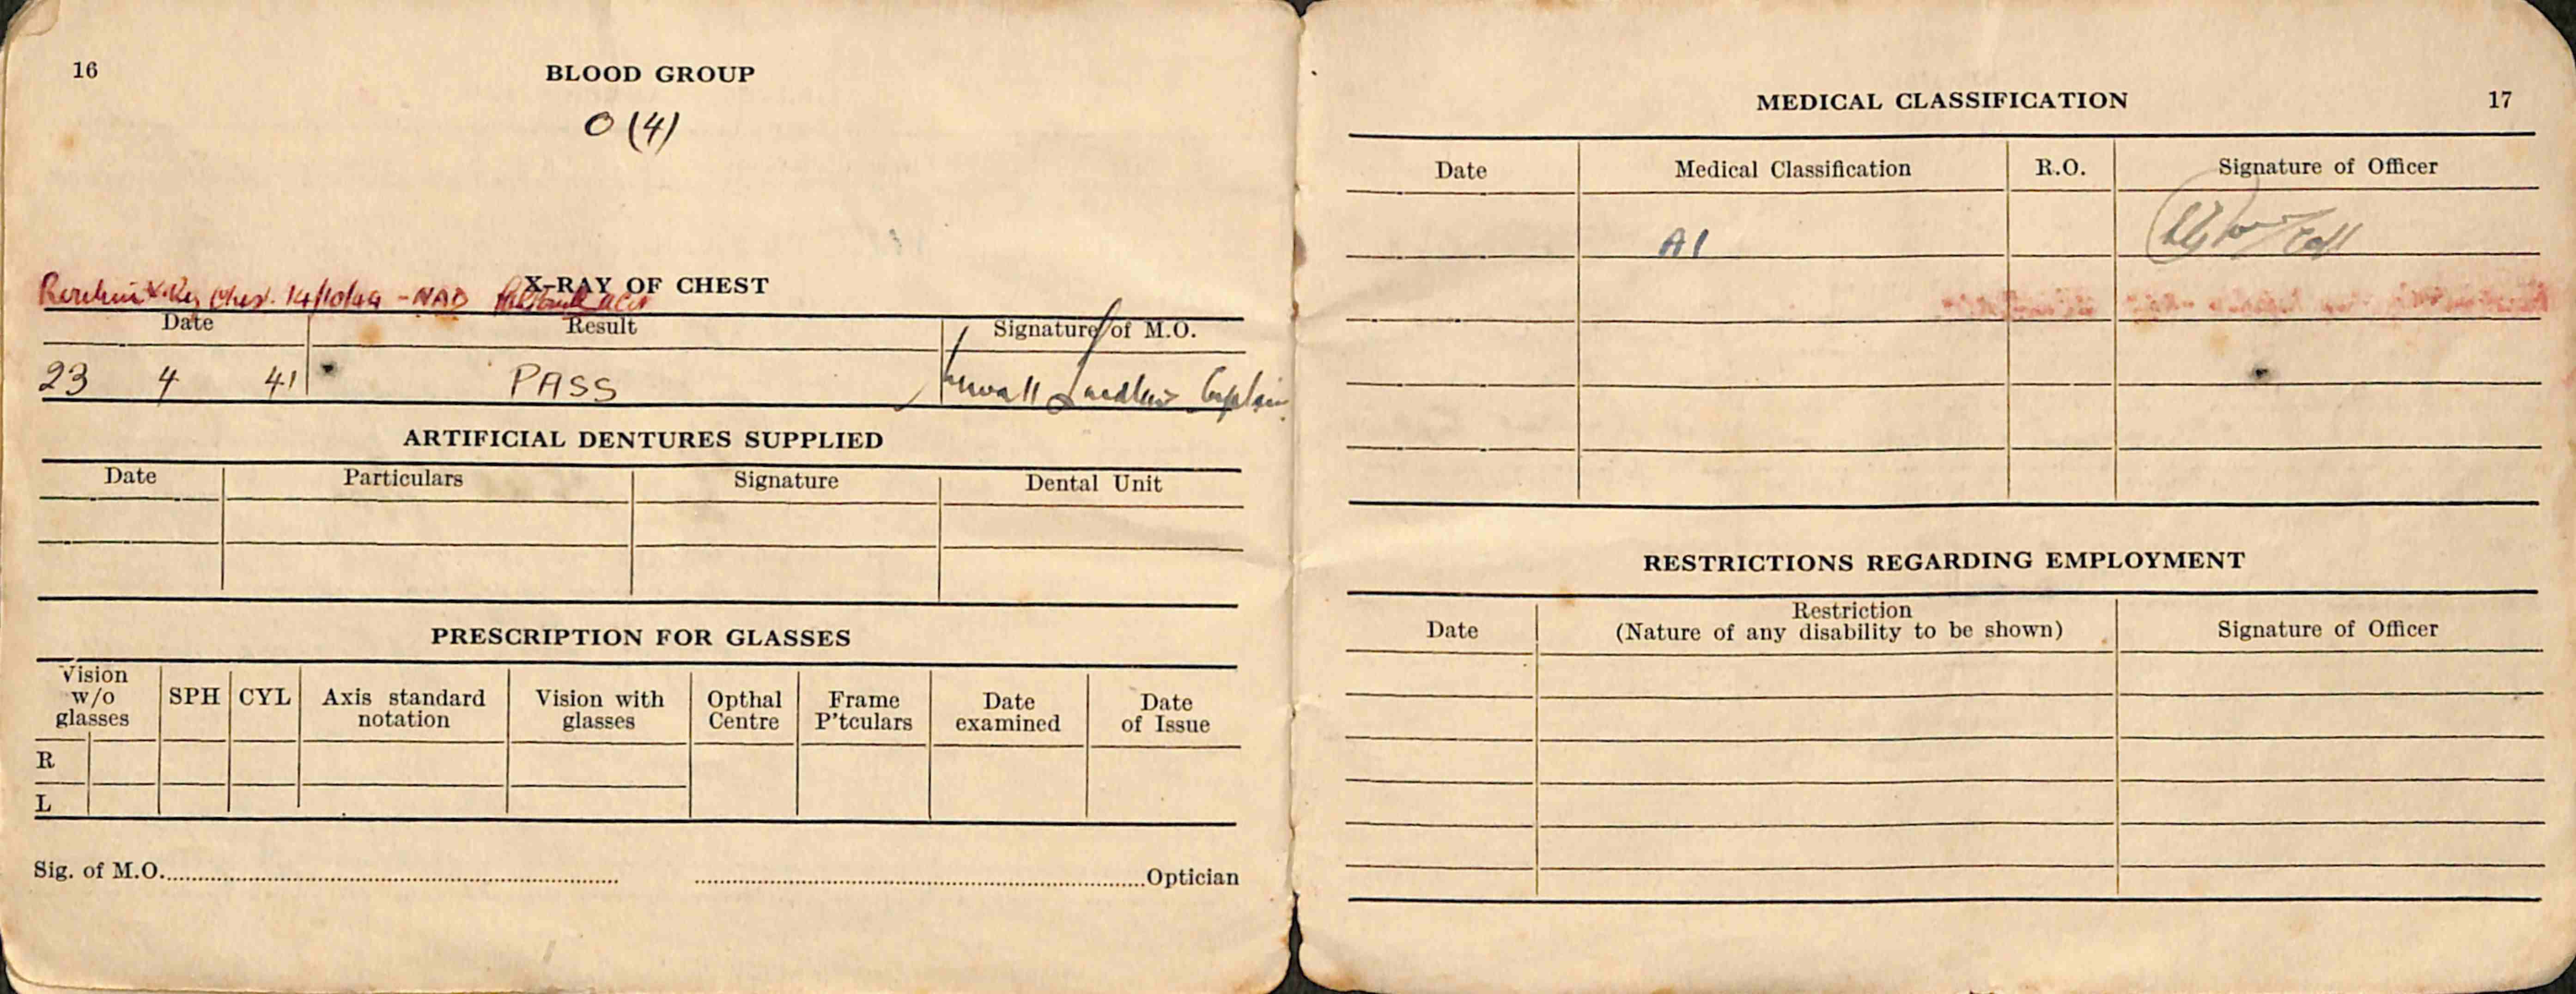 16
BLOOD GROUP
O (4)
X-RAY OF CHEST
X-Ray Chest 14/10/44 - NAD
Date Result Signature of M.O.
23 4 41 PASS Captain
ARTIFICIAL DENTURES SUPPLIED
Date Particulars Signature Dental Unit
PRESCRIPTION FOR GLASSES
Vision w/o glasses SPH CYL Axis standard notation Vision with glasses Opthal Centre Frame P'tculars Date examined Date of Issue
R
L
Sig. of M.O. Optician
MEDICAL CLASSIFICATION 17
Date Medical Classification R.O. Signature of Officer
A1
RESTRICTIONS REGARDING EMPLOYMENT
Date Restriction (Nature of any disability to be shown) Signature of Officer